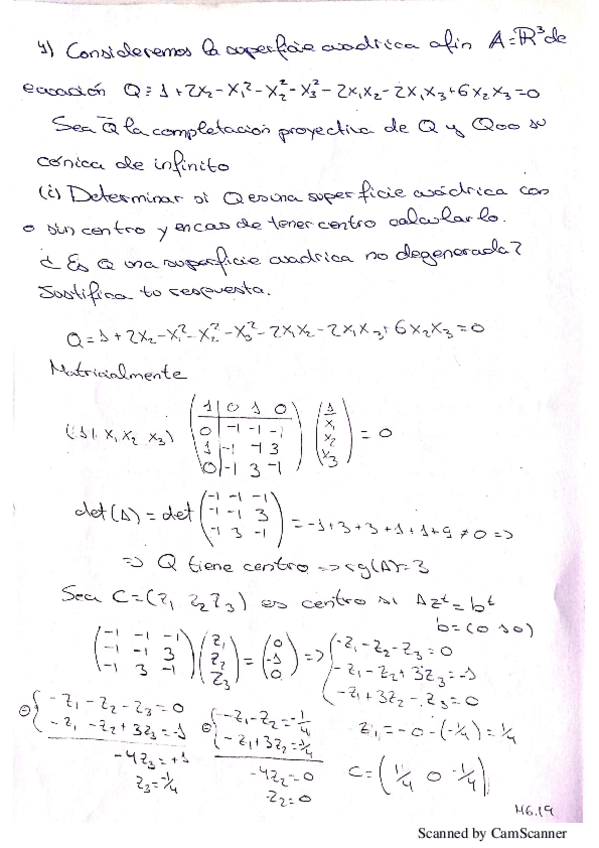 4) Consideremos la superficie cuadrica afin A=ℝ³ de
ecuación Q≡1+2x₂-x₁²-x₂²-x₃²-2x₁x₂-2x₁x₃+6x₂x₃=0
Sea Q̄ la completacion proyectiva de Q y Q∞ su
cónica de infinito
(i) Determinar si Q es una superficie cuádrica con
o sin centro y encaso de tener centro calcularlo.
¿Es Q una superficie cuadrica no degenerada?
Justifica tu respuesta.
Q=1+2x₂-x₁²-x₂²-x₃²-2x₁x₂-2x₁x₃+6x₂x₃=0
Matricialmente
(1 | x₁ x₂ x₃) (1 | 0 1 0 / 0 | -1 -1 -1 / 1 | -1 -1 3 / 0 | -1 3 -1) (1 / x₁ / x₂ / x₃) = 0
det(A) = det (-1 -1 -1 / -1 -1 3 / -1 3 -1) = -1+3+3+1+1+9 ≠ 0 =>
=> Q tiene centro => rg(A)=3
Sea C=(z₁ z₂ z₃) es centro si Azᵗ=bᵗ
b=(0 1 0)
(-1 -1 -1 / -1 -1 3 / -1 3 -1) (z₁ / z₂ / z₃) = (0 / -1 / 0) => { -z₁-z₂-z₃=0 / -z₁-z₂+3z₃=-1 / -z₁+3z₂-z₃=0
⊖ { -z₁-z₂-z₃=0 / -z₁-z₂+3z₃=-1
-4z₃=+1
z₃=-1/4
⊖ { -z₁-z₂=-1/4 / -z₁+3z₂=-1/4
-4z₂=0
z₂=0
z₁=-0-(-1/4)=1/4
C=(1/4 0 -1/4)
M6.19
Scanned by CamScanner